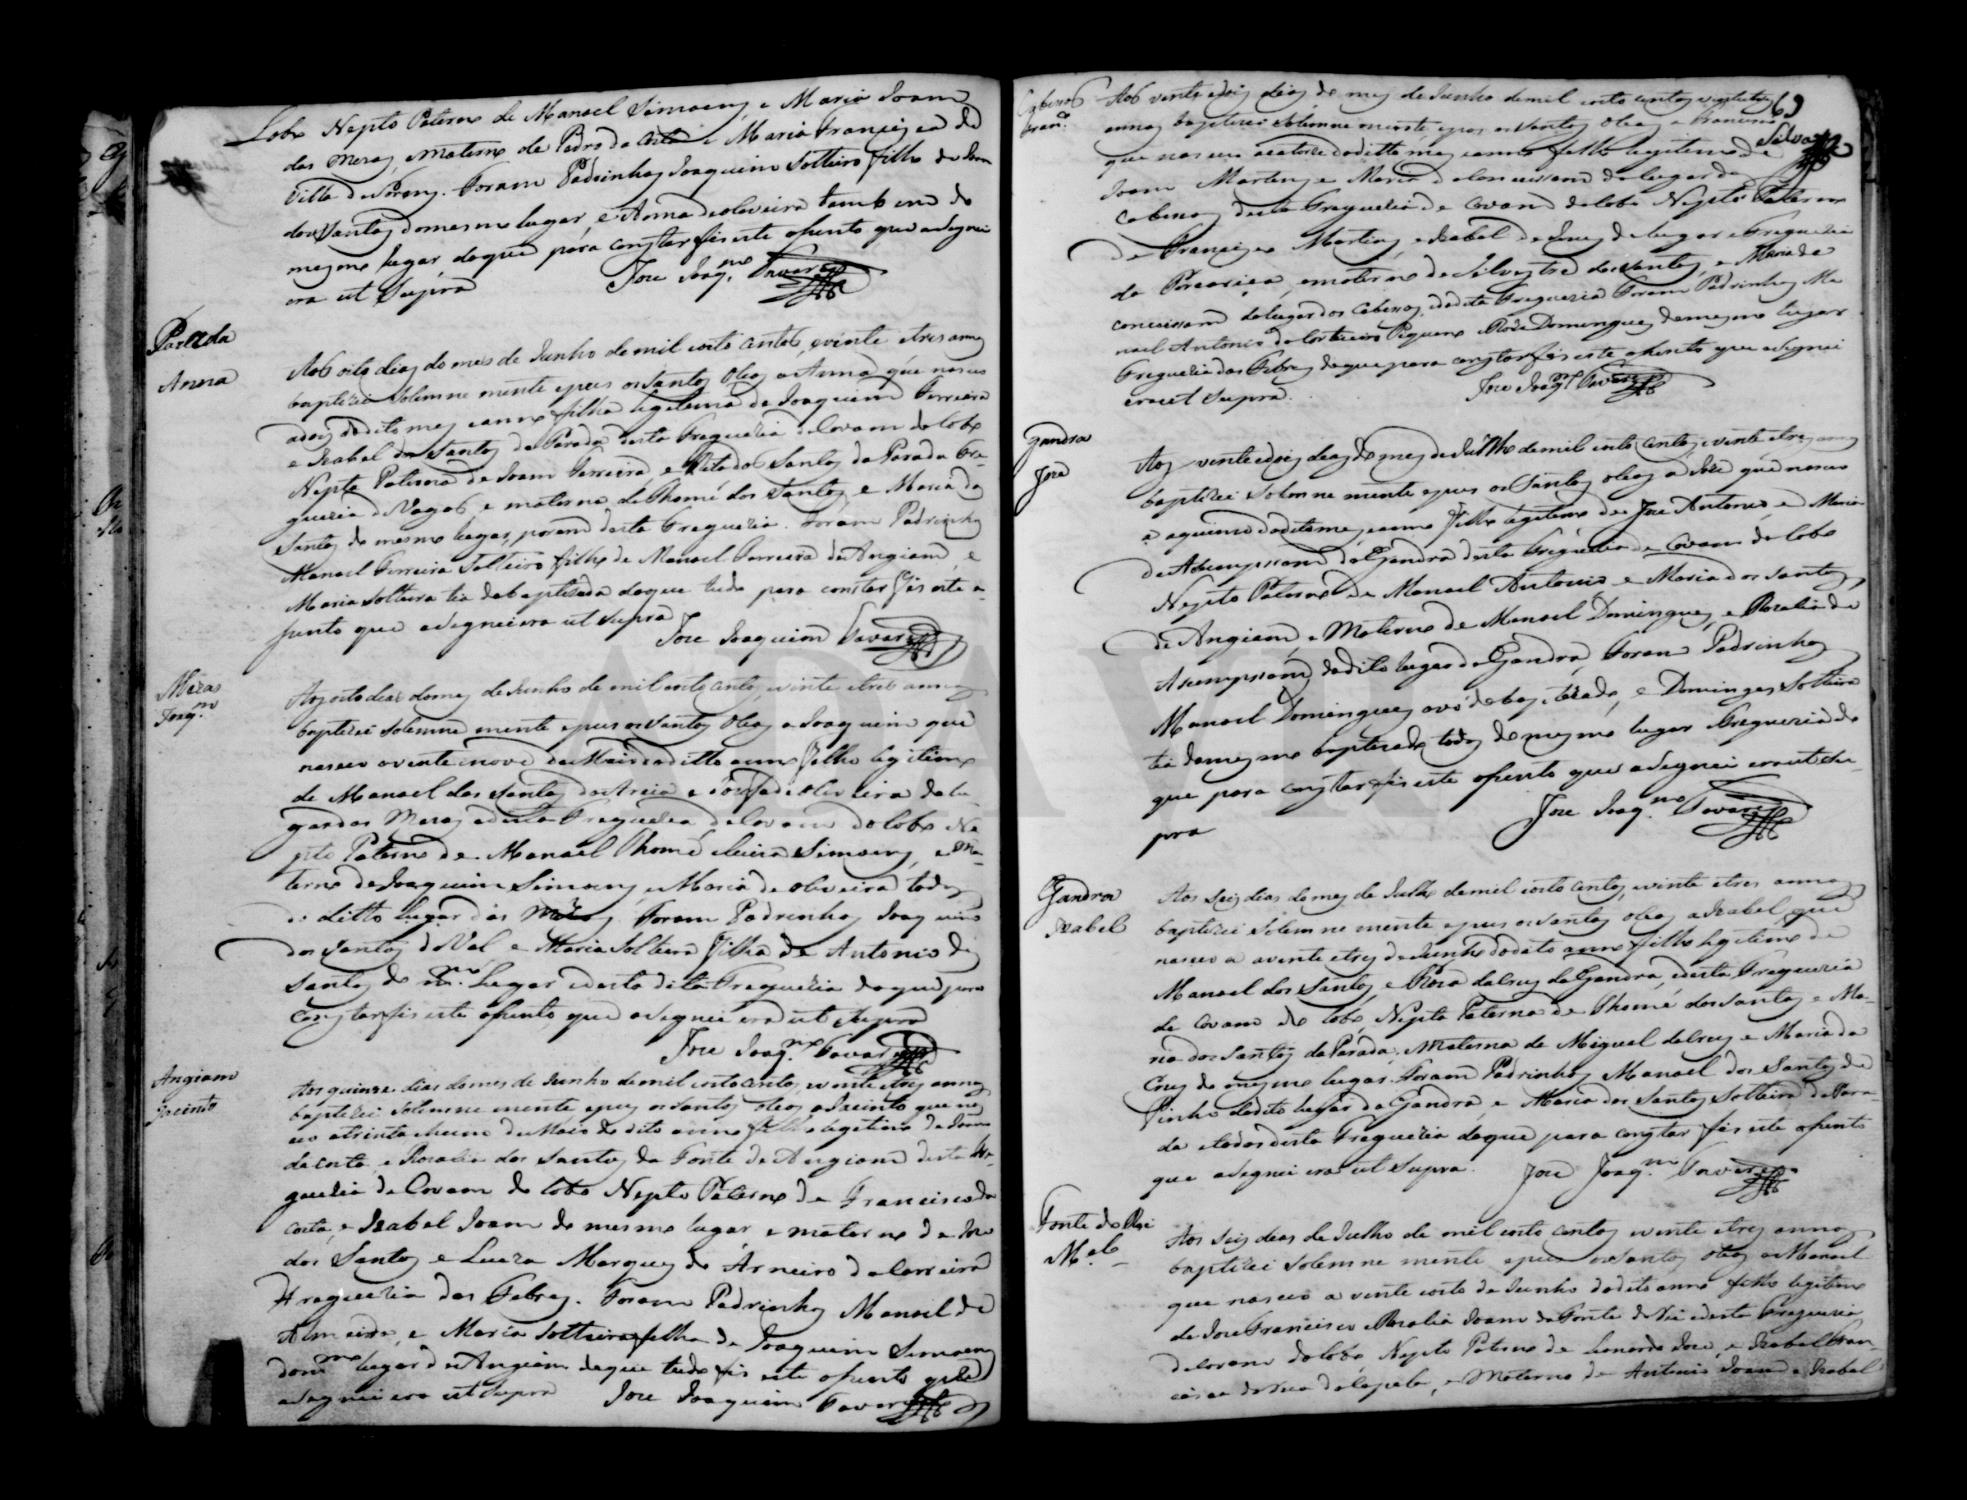 Lobo Neptto Paterno de Manoel Simoens, e Maria Joam
das Meras, e materno de Pedro da Costa e Maria Francisca da
Villa de Soreny. Foram Padrinhos Joaquim Solteiro filho de Joam
dos Santos do mesmo lugar, e Anna de oliveira tambem do
mesmo lugar, do que para constar fis este asento que asignei
era ut supra Joze Joaqm. Tavares
Parada
Anna
Aos oito dias do mes de Junho de mil oito centos, e vinte e tres annos
baptizei solemne mente e pus os Santos Oleos a Anna que nasceo
a dois do dito mes e anno filha legitima de Joaquim Ferreira
e Izabel dos Santos da Parada desta Freguezia de Covam do lobo
Nepta Paterna de Joam Ferreira, e Rita dos Santos da Parada Fre-
guezia de Vagos, e materna de Thomé dos Santos, e Maria dos
Santos do mesmo lugar, porem desta Freguezia. Foram Padrinhos
Manoel Ferreira Solteiro filho de Manoel Ferreira de Angiam, e
Maria Solteira tia da baptizada do que tudo para constar fis este a-
sento que asignei era ut supra
Joze Joaquim Tavares
Meras
Joaqm.
Aos oito dias do mes de Junho de mil oito centos, e vinte e tres annos
baptizei solemne mente e pus os Santos Oleos a Joaquim que
nasceo a vinte e nove de Maio do ditto anno filho legitimo
de Manoel dos Santos da Areia e Jozefa de oliveira do lu-
gar das Meras e desta Freguezia de Covam do lobo Ne-
pto Paterno de Manoel Thomé e Luiza Simoens, e Ma-
terno de Joaquim Simoens, e Maria de oliveira todos
do ditto lugar das Meras. Foram Padrinhos Joaquim
dos Santos do Val, e Maria Solteira filha de Antonio dos
Santos do mmo. lugar e desta dita Freguezia do que para
constar fis este asento que asignei era ut supra
Joze Joaqm. Tavares
Angiam
Jacinto
Aos quinze dias do mes de Junho de mil oito centos, e vinte e tres annos
baptizei solemne mente e pus os Santos Oleos a Jacinto que nas-
ceo a trinta e hum de Maio do dito anno filho legitimo de Joam
da Costa, e Rozalia dos Santos, da Fonte de Angiam desta Fre-
guezia de Covam do lobo Nepto Paterno de Francisco da
Costa, e Izabel Joam do mesmo lugar, e materno de Joze
dos Santos e Luiza Marques do Arneiro da Correira
Freguezia das Febres. Foram Padrinhos Manoel de
Almeida, e Maria Solteira filha de Joaquim Simoens
do mmo. lugar de Angiam do que tudo fis este asento que
asignei era ut supra Joze Joaquim Tavares
69
Silva
Cabesos
Franco.
Aos vinte e dois dias do mes de Junho de mil oito centos e vinte e tres
annos baptizei solemne mente e pus os Santos Oleos a Francisco
que nasceo a catorze do ditto mes e anno filho legitimo de
Joam Martins, e Maria da Conceisam do lugar dos
Cabesos desta Freguezia de Covam do lobo Nepto Paterno
de Francisco Martins, e Izabel de Jezus do lugar e Freguezia
da Pocarisa, e materno de Silvestre dos Santos, e Maria da
Conceisam do lugar dos Cabesos, e da dita Freguezia Foram Padrinhos Ma-
noel Antonio do Corticeiro Piqueno e Roza Domingues do mesmo lugar
Freguezia das Febres do que para constar fis este asento que asignei
era ut supra. Joze Joaqm. Tavares
Gandra
Joze
Aos vinte e dois dias do mes de Junho de mil oito centos, e vinte e tres annos
baptizei solemne mente e pus os Santos oleos a Joze que nasceo
a quinze do dito mes, e anno filho legitimo de Joze Antonio, e Maria
da Asumpsam da Gandra desta Freguezia de Covam do lobo
Nepto Paterno de Manoel Antonio, e Maria dos Santos,
de Angiam, e Materno de Manoel Domingues, e Rozalia da
Asumpsam, do dito lugar da Gandra, Foram Padrinhos
Manoel Domingues avó do baptizado, e Domingas Solteira
tia do mesmo baptizado todos do mesmo lugar e Freguezia do
que para constar fis este asento que asignei era ut su-
pra Joze Joaqm. Tavares
Gandra
Izabel
Aos seis dias do mes de Julho de mil oito centos, e vinte e tres annos
baptizei solemne mente e pus os Santos Oleos a Izabel que
nasceo a vinte e tres de Junho do dito anno filha legitima de
Manoel dos Santos, e Roza da Crus da Gandra, e desta Freguezia
de Covam do lobo, Nepta Paterna de Thomé dos Santos e Ma-
ria dos Santos da Parada, e Materna de Miguel da Crus e Maria da
Crus do mesmo lugar. Foram Padrinhos Manoel dos Santos de
Pinho do dito lugar da Gandra, e Maria dos Santos Solteira da Para-
da e todos desta Freguezia do que para constar fis este asento
que asignei era ut supra. Joze Joaqm. Tavares
Fonte do Rei
Mel.
Aos seis dias de Julho de mil oito centos, e vinte e tres annos
baptizei solemne mente e pus os Santos oleos a Manoel
que nasceo a vinte e oito de Junho do dito anno filho legitimo
de Joze Francisco e Rozalia Joam da Fonte do Rei e desta Freguezia
de Covam do lobo, Nepto Paterno de Leonardo Joze, e Izabel Fran-
cisca da Rua da Capela, e Materno de Antonio Joam e Izabel
ADAVR